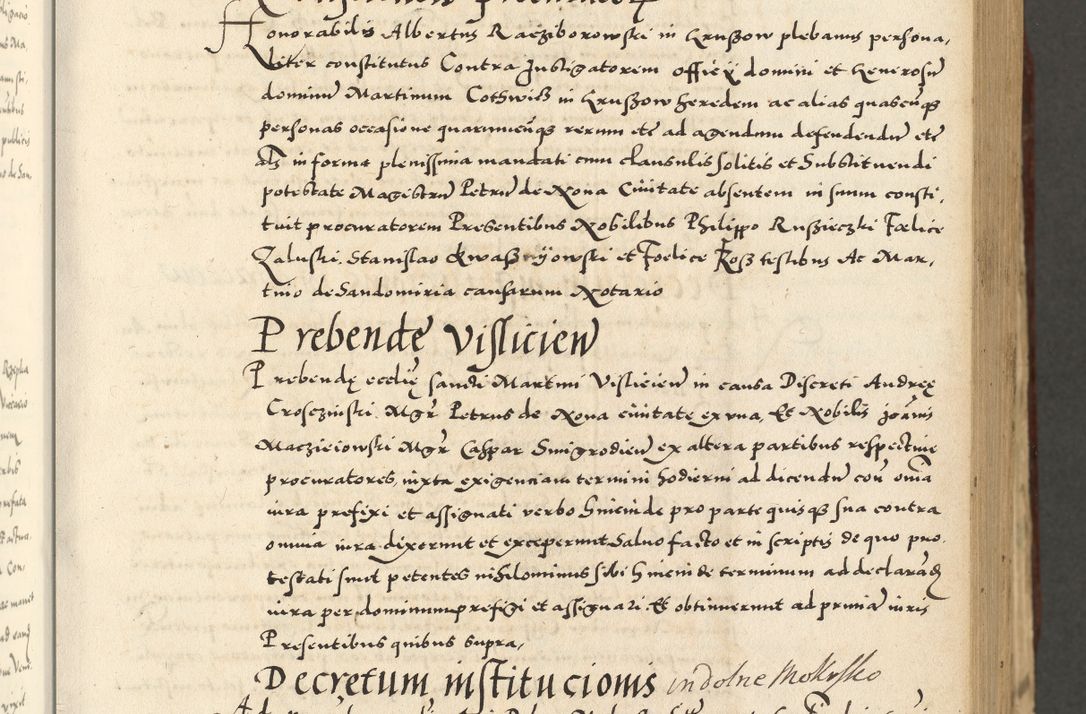 Honorabilis Albertus Racziborowski in Kruszow plebanus persona,
liter constitutus Contra Instigatorem officij domini et Generosum
dominum Martinum Cothwicz in Kruszow heredem ac alias quascunqꝫ
personas occasione quarumcunqꝫ rerum etc ad agendum defendendum etc
als in forma plenissima mandati cum clausulis solitis et Substituendi
potestate Magistrum Petrum de Nona Ciuitate absentem in suum consti,
tuit procuratorem Presentibus Nobilibus Philippo Ruszieczki Foelice
Zaluski. Stanislao et Foelice Kosz testibus Ac Mar,
tino de Sandomiria causarum Notario
Prebendę Vislicien
Prebendę ecclię sancti Martini Vislicien in causa Discreti Andreę
Crosczinski Mgr Petrus de Noua ciuitate ex vna, Et Nobilis joannis
Macziciowski Mgr Caspar Smigrodien ex altera partibus respectiue
procuratores, iuxta exigenciam termini hodierni ad dicendum con omnia
iura prefixi et assignati verbo hincinde pro parte quisqꝫ sua contra
omnia iura dixerunt et exceperunt Saluo facto et in scriptis de quo pro,
testati sunt petentes nihilominus sibi hincinde terminum ad declarand
iura per dominum prefigi et assignari Et obtinuerunt ad primam iuris
Presentibus quibus supra,
Decretum institucionis in dolne Mokrsko